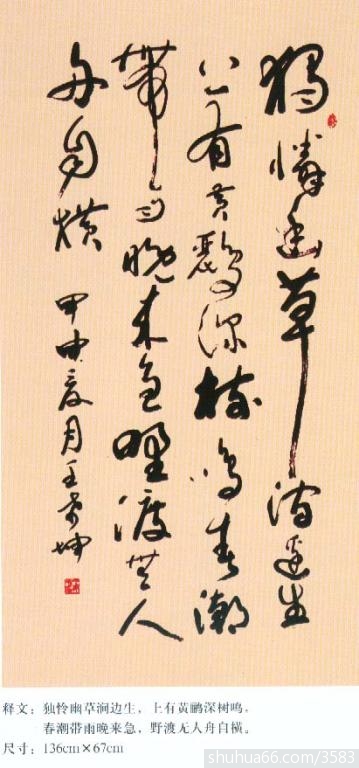 獨憐幽草澗邊生
上有黄鸝深樹鳴春潮
帶雨晚来急野渡無人
舟自横
甲申夏月王坤
释文：独怜幽草涧边生，上有黄鹏深树鸣。
春潮带雨晚来急，野渡无人舟自横。
尺寸：136cm×67cm
shuhua66.com/3583